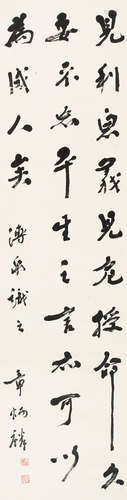 見利思義見危授命久
要不忘平生之言亦可以
為成人矣 溥泉識之
章炳麟